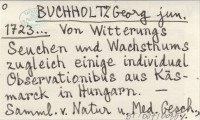 BUCHHOLTZ Georg jun.
1723... Von Witterungs
Seuchen und Wachsthums
zugleich einige individual
Observationibus aus Käs-
marck in Hungarn. —
Samml. v. Natur u. Med. Gesch.,